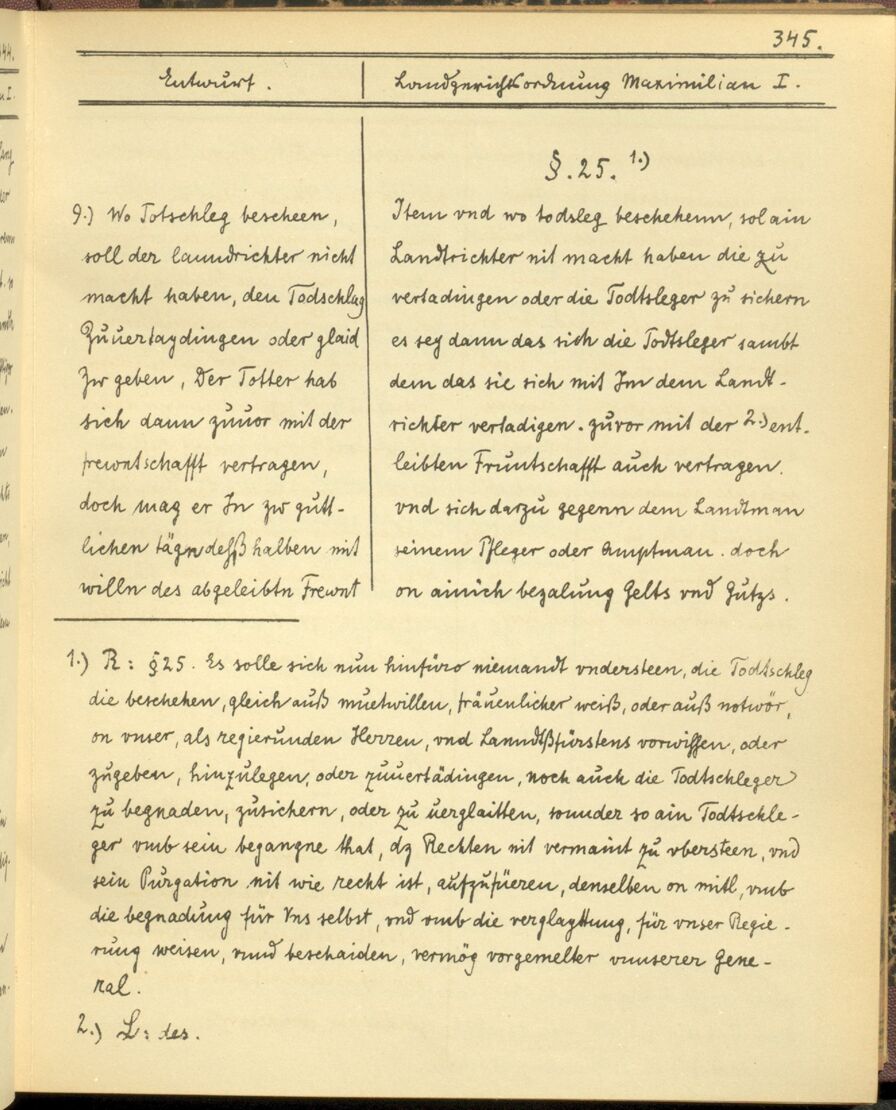 345.
Entwurf.
Landgerichtsordnung Maximilian I.
9.) Wo Totschleg bescheen,
soll der lanndrichter nicht
macht haben, den Todschlag
Zuuertaydingen oder glaid
Zw geben, Der Totter hab
sich dann zuuor mit der
frewntschafft vertragen,
doch mag er In zw gutt-
lichen tägn deßhalben mit
willn des abgeleibtn Frewnt
§. 25. 1.)
Item vnd wo todsleg beschehenn, sol ain
Landtrichter nit macht haben die zu
vertadingen oder die Todtsleger zu sichern
es sey dann das sich die Todtsleger sambt
dem das sie sich mit Im dem Landt-
richter vertadigen. zuvor mit der 2.) ent-
leibten Fruntschafft auch vertragen.
vnd sich darzu gegenn dem Landtman
seinem Pfleger oder Amptman. doch
on ainich bezalung Gelts vnd Gutzs.
1.) R: §25. Es solle sich nun hinfüro niemandt vndersteen, die Todtschleg
die beschehen, gleich auß muetwillen, fräuenlicher weiß, oder auß notwör,
on vnser, als regierunden Herren, vnd Lanndtßfürstens vorwissen, oder
zugeben, hinzulegen, oder zuuertädingen, noch auch die Todtschleger
zu begnaden, zusichern, oder zu uerglaitten, sonnder so ain Todtschle-
ger vmb sein begangne that, dz Rechten nit vermaint zu vbersteen, vnd
sein Purgation nit wie recht ist, aufzufüeren, denselben on mitl, vmb
die begnadung für Vns selbst, vnd vmb die verglayttung, für vnser Regie-
rung weisen, vnnd beschaiden, vermög vorgemelter vnnserer Gene-
ral.
2.) L: des.